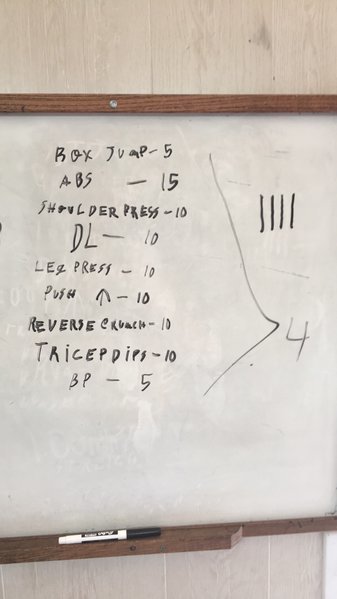 BOX JUMP - 5
ABS - 15
SHOULDER PRESS - 10
DL - 10
LEG PRESS - 10
PUSH ↑ - 10
REVERSE CRUNCH - 10
TRICEP DIPS - 10
BP - 5
||||
4